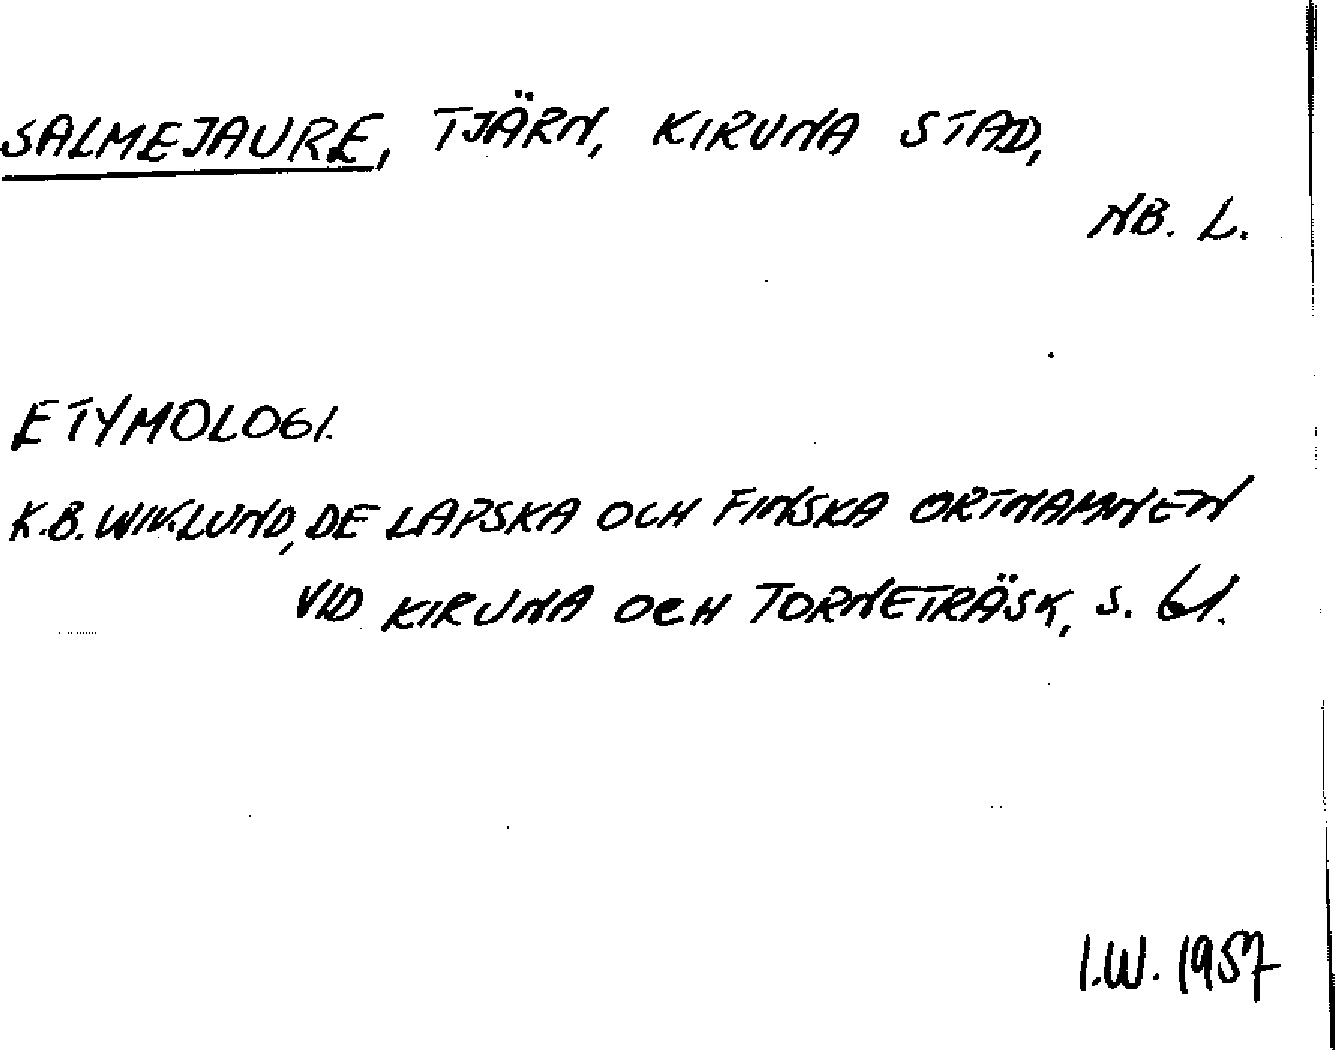 SALMEJAURE, TJÄRN, KIRUNA STAD,
NB. L.
ETYMOLOGI.
K.B. WIKLUND, DE LAPSKA OCH FINSKA ORTNAMNEN
VID KIRUNA OCH TORNETRÄSK, S. 61.
I.W. 1957